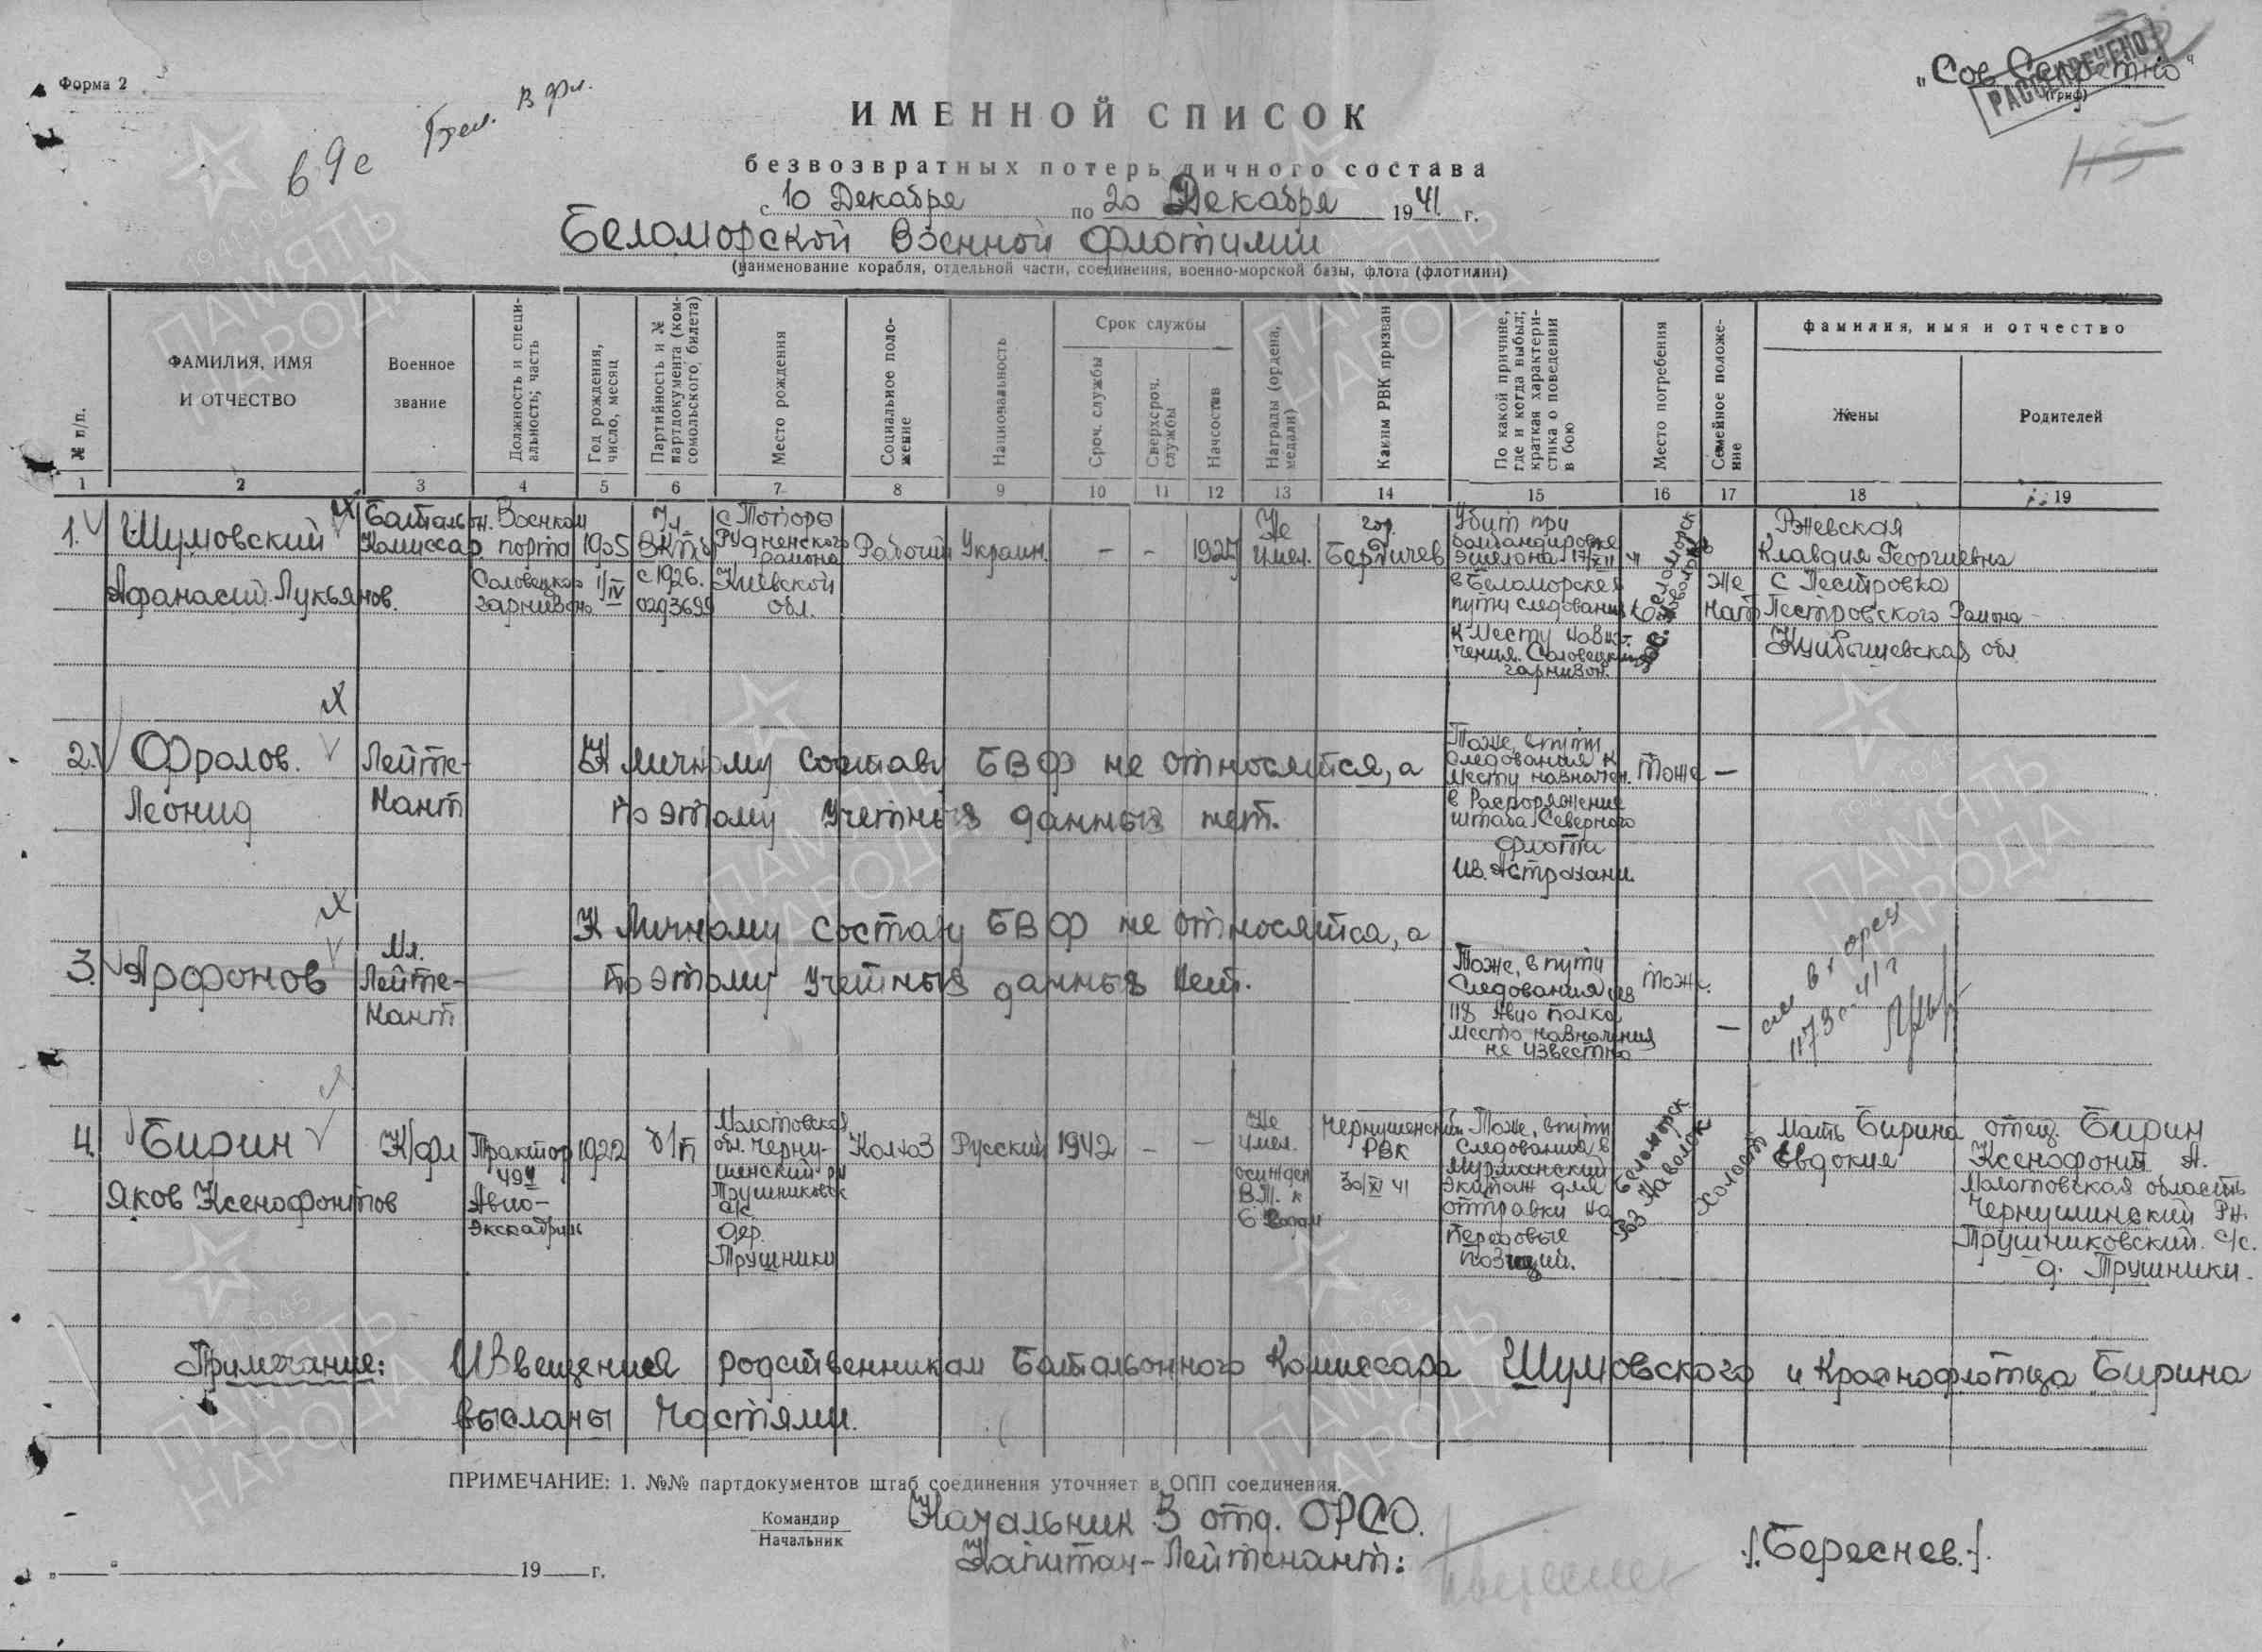 Форма 2
Бел. В Фл.
"Сов Секретно"
(гриф)
РАССЕКРЕЧЕНО
115
ИМЕННОЙ СПИСОК
безвозвратных потерь личного состава
с 10 Декабря по 20 Декабря 1941 г.
Беломорской Военной Флотилии
(наименование корабля, отдельной части, соединения, военно-морской базы, флота (флотилии)
№ п/п.
ФАМИЛИЯ, ИМЯ
И ОТЧЕСТВО
Военное
звание
Должность и специ-
альность; часть
Год рождения,
число, месяц
Партийность и №
партдокумента (ком-
сомольского, билета)
Место рождения
Социальное поло-
жение
Национальность
Срок службы
Сроч. службы
Сверхсроч.
службы
Начсостав
Награды (ордена,
медали)
Каким РВК призван
По какой причине,
где и когда выбыл;
краткая характери-
стика о поведении
в бою
Место погребения
Семейное положе-
ние
фамилия, имя и отчество
Жены
Родителей
1 2 3 4 5 6 7 8 9 10 11 12 13 14 15 16 17 18 19
1.
Шумовский
Афанасий Лукьянов.
Батальон.
Комиссар
Военком
порта
Соловецкого
гарнизона
1905
1/IV
Чл.
ВКПб
с 1926.
0293699
с Топоры
Рудненского
района
Киевской
обл.
Рабочий
Украин.
-
-
1927
Не
имел.
гор.
Бердичев
Убит при
бомбандировке
эшелона 17/XII 41
в Беломорске
пути следования
к Месту назнач-
чения. Соловецкий
гарнизон.
Же
нат
Ржевская
Клавдия Георгиевна
с Пестровка
Пестровского Района
Куйбышевская обл
2.
Фролов.
Леонид
Лейте-
нант
К личному составу БВФ не относятся, а
по этому учетных данных нет.
Тоже, в пути
следования к
месту назначен.
в Распоряжение
штаба Северного
Флота
из. Астрахани.
Тоже
—
3.
Арфонов
Мл.
Лейте-
нант
К Личному составу БВФ не относятся, а
по этому учетных данных нет.
Тоже, в пути
следования из
118 Авио полка
место назначения
не известно
Тоже.
—
4.
Бирин
Яков Ксенофонтов
К/фл
Трактор
49й
Авио-
Эскадрилья
1922
б/п
Молотовская
обл. Черну-
шенский р-н
Трушниковск
с/с
дер.
Трушники
Колхоз
Русский
1942
-
—
Не
имел.
осужден
В.Т. к
6 годам
Чернушенский
РВК
30/XI 41
Тоже, в пути
следования в
Мурманский
экипаж для
отправки на
передовые
позиций.
Беломорск
Наволок
Холост
мать Бирина
Евдокия
отец. Бирин
Ксенофонт А.
Молотовская область
Чернушинский РН.
Трушниковский с/с.
д. Трушники.
Примечание: Извещения родственникам Батальонного Комиссара Шумовского и Краснофлотца Бирина
высланы Частями.
ПРИМЕЧАНИЕ: 1. №№ партдокументов штаб соединения уточняет в ОПП соединения.
Командир
Начальник
Начальник 3 отд. ОРСО.
Капитан-Лейтенант:
/.Береснев./.
„___" ___ 19___г.
ПАМЯТЬ
НАРОДА
1941 1945